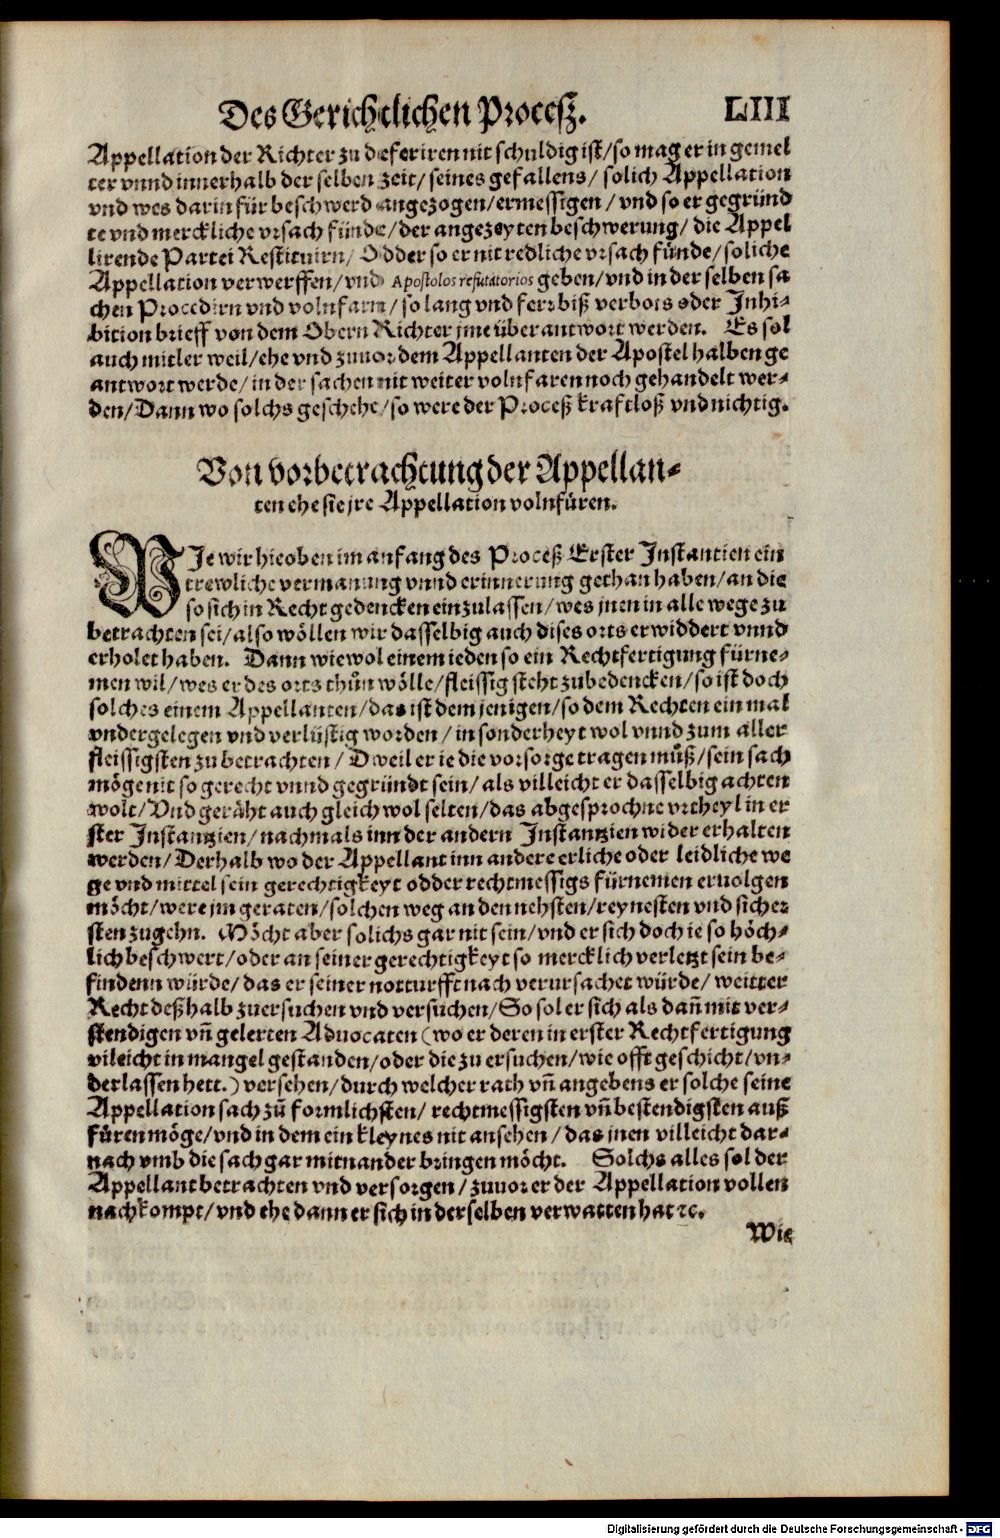 Des Gerichtlichen Procesz. LIII
Appellation der Richter zu deferiren nit schuldig ist/so mag er in gemel
ter vnnd innerhalb der selben zeit/seines gefallens/solich Appellation
vnd wes darin für beschwerd angezogen/ermessigen/vnd so er gegründ
te vnd merckliche vrsach fünde/der angezeyten beschwerung/die Appel
lirende Partei Restituirn/Odder so er nit redliche vrsach fünde/soliche
Appellation verwerffen/vnd Apostolos refutatorios geben/vnd in der selben sa
chen Procedirn vnd volnfarn/so lang vnd ferr biß verbots oder Inhi-
bition brieff von dem Obern Richter jme überantwort werden. Es sol
auch mitler weil/ehe vnd zuuor dem Appellanten der Apostel halben ge
antwort werde/in der sachen nit weiter volnfaren noch gehandelt wer-
den/Dann wo solchs geschehe/so were der Proceß krafftloß vnd nichtig.
Von vorbetrachtung der Appellan-
ten ehe sie jre Appellation volnfüren.
WIe wir hieoben im anfang des Proceß Erster Instantien ein
trewliche vermanung vnnd erinnerung gethan haben/an die
so sich in Recht gedencken einzulassen/wes jnen in alle wege zu
betrachten sei/also wöllen wir dasselbig auch dises orts erwiddert vnnd
erholet haben. Dann wiewol einem ieden so ein Rechtfertigung fürne-
men wil/wes er des orts thůn wölle/fleissig steht zubedencken/so ist doch
solches einem Appellanten/das ist dem jenigen/so dem Rechten ein mal
vndergelegen vnd verlüstig worden/in sonderheyt wol vnnd zum aller
fleissigsten zu betrachten/Dweil er ie die vorsorge tragen můß/sein sach
möge nit so gerecht vnnd gegründt sein/als villeicht er dasselbig achten
wolt/Vnd geräht auch gleich wol selten/das abgesprochne vrtheyl in er
ster Instantzien/nachmals inn der andern Instantzien wider erhalten
werden/Derhalb wo der Appellant inn andere erliche oder leidliche we
ge vnd mittel sein gerechtigkeyt odder rechtmessigs fürnemen eruolgen
möcht/were jm geraten/solchen weg an den nehsten/reynesten vnd sicher
sten zugehn. Möcht aber solichs gar nit sein/vnd er sich doch ie so höch-
lich beschwert/oder an seiner gerechtigkeyt so mercklich verletzt sein be-
findenn würde/das er seiner notturfft nach verursachet würde/weitter
Recht deßhalb zuersuchen vnd versuchen/So sol er sich als dañ mit ver-
stendigen vñ gelerten Aduocaten (wo er deren in erster Rechtfertigung
vileicht in mangel gestanden/oder die zu ersuchen/wie offt geschicht/vn-
derlassen hett.) versehen/durch welcher rath vñ angebens er solche seine
Appellation sach zů formlichsten/rechtmessigsten vñ bestendigsten auß
füren möge/vnd in dem ein kleynes nit ansehen/das jnen villeicht dar-
nach vmb die sach gar mitnander bringen möcht. Solchs alles sol der
Appellant betrachten vnd versorgen/zuuor er der Appellation vollen
nachkompt/vnd ehe dann er sich in derselben verwatten hat ꝛc.
Wie
Digitalisierung gefördert durch die Deutsche Forschungsgemeinschaft - DFG